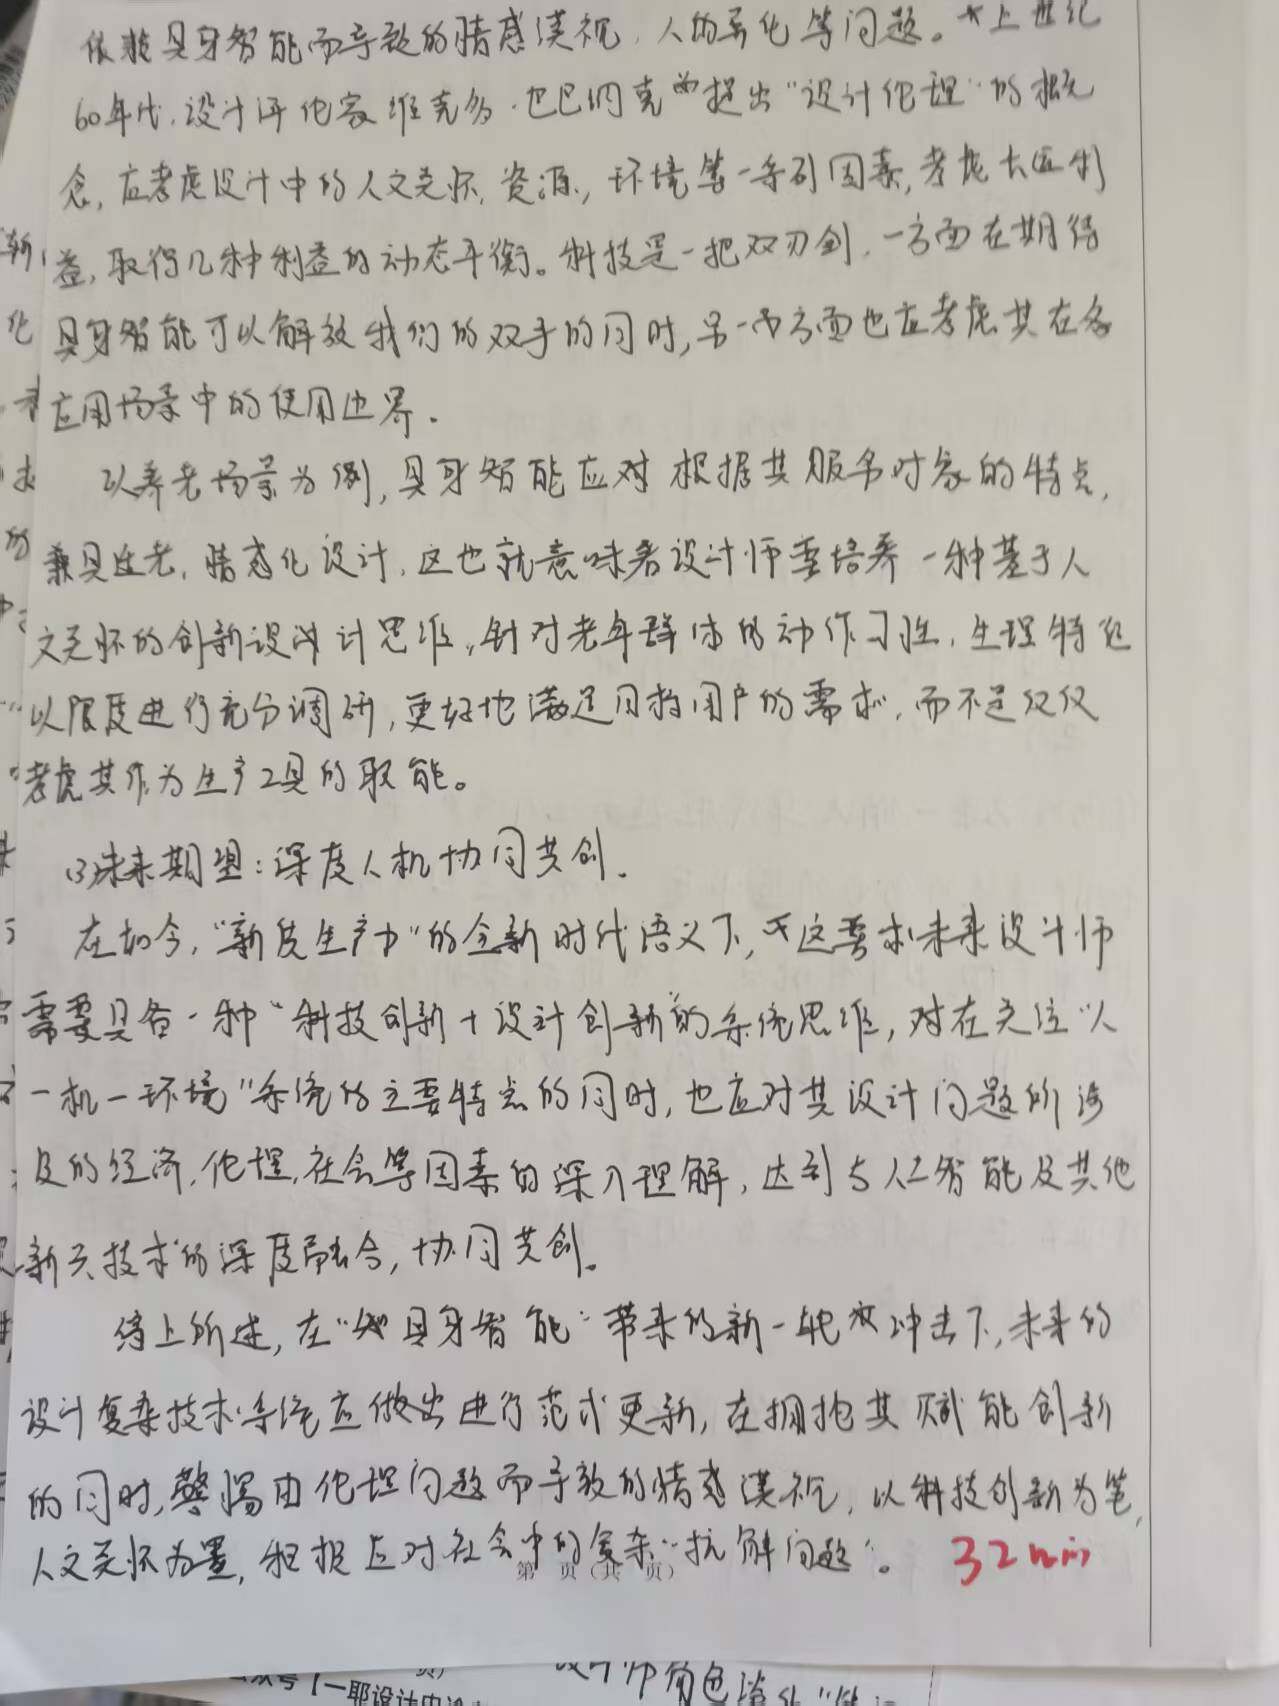 依赖具身智能而导致的情感漠视,人的异化等问题。上世纪
60年代,设计评论家维克多·巴巴纳克提出“设计伦理”的概
念,应考虑设计中的人文关怀,资源,环境等一系列因素,考虑大匠利
益,取得几种利益的动态平衡。科技是一把双刃剑,一方面在期待
具身智能可以解放我们的双手的同时,另一方面也应考虑其在各
应用场景中的使用边界。
以养老场景为例,具身智能应对根据其服务对象的特点,
兼具适老,情感化设计,这也就意味着设计师要培养一种基于人
文关怀的创新设计思维,针对老年群体的动作习性,生理特征
以限度进行充分调研,更好地满足目标用户的需求,而不是仅仅
考虑其作为生产工具的职能。
(3)未来期望:深度人机协同共创。
在如今,“新质生产力”的全新时代语义下,这要求未来设计师
需要具备一种“科技创新+设计创新”的系统思维,对在关注“人
一机一环境”系统的主要特点的同时,也应对其设计问题所涉
及的经济,伦理,社会等因素的深入理解,达到与人工智能及其他
新兴技术的深度融合,协同共创。
综上所述,在“具身智能”带来的新一轮冲击下,未来的
设计复杂技术系统应做出进行范式更新,在拥抱其赋能创新
的同时,警惕由伦理问题而导致的情感漠视,以科技创新为笔,
人文关怀为墨,积极应对社会中的复杂“抗解问题”。 32min
第 页(共 页)
设计师角色